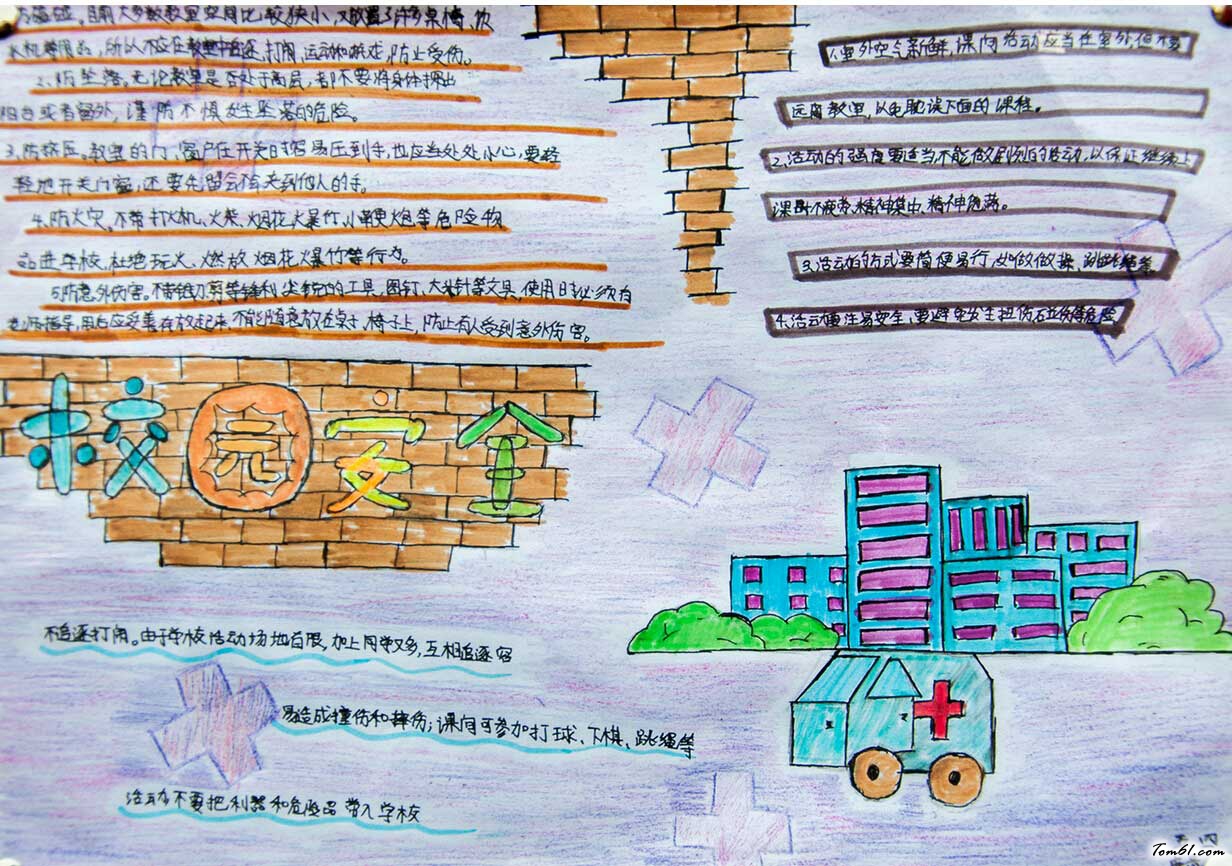 防磕碰。目前大多数教室空间比较狭小,又放置了许多桌椅、饮
水机等用品,所以不应在教室中追逐、打闹、运动和游戏,防止受伤。
2、防坠落。无论教室是否处于高层,都不要将身体探出
阳台或者窗外,谨防不慎发生坠落的危险。
3、防挤压。教室的门、窗户在开关时容易压到手,也应当处处小心,要轻
轻地开关门窗,还要先留会不会夹到他人的手。
4、防火灾。不带打火机、火柴、烟花、爆竹、小鞭炮等危险物
品进学校,杜绝玩火、燃放烟花爆竹等行为。
5、防意外伤害。不带锥、刀、剪等锋利、尖锐的工具,图钉、大头针等文具,使用时必须有
老师指导,用后应妥善存放起来,不能随意放在桌子、椅子上,防止有人受到意外伤害。
校园安全
1.室外空气新鲜,课间活动应当在室外,但不要
远离教室,以免耽误下面的课程。
2.活动的强度要适当,不能做剧烈的活动,以保证继续上
课时不疲劳、精神集中、精神饱满。
3.活动的方式要简便易行,如做做操、跳跳绳等。
4.活动要注易安全,要避免发生扭伤、碰伤等危险
不追逐打闹。由于学校活动场地有限,加上同学又多,互相追逐容
易造成撞伤和摔伤;课间可参加打球、下棋、跳绳等
活动不要把利器和危险品带入学校
Tom61.com